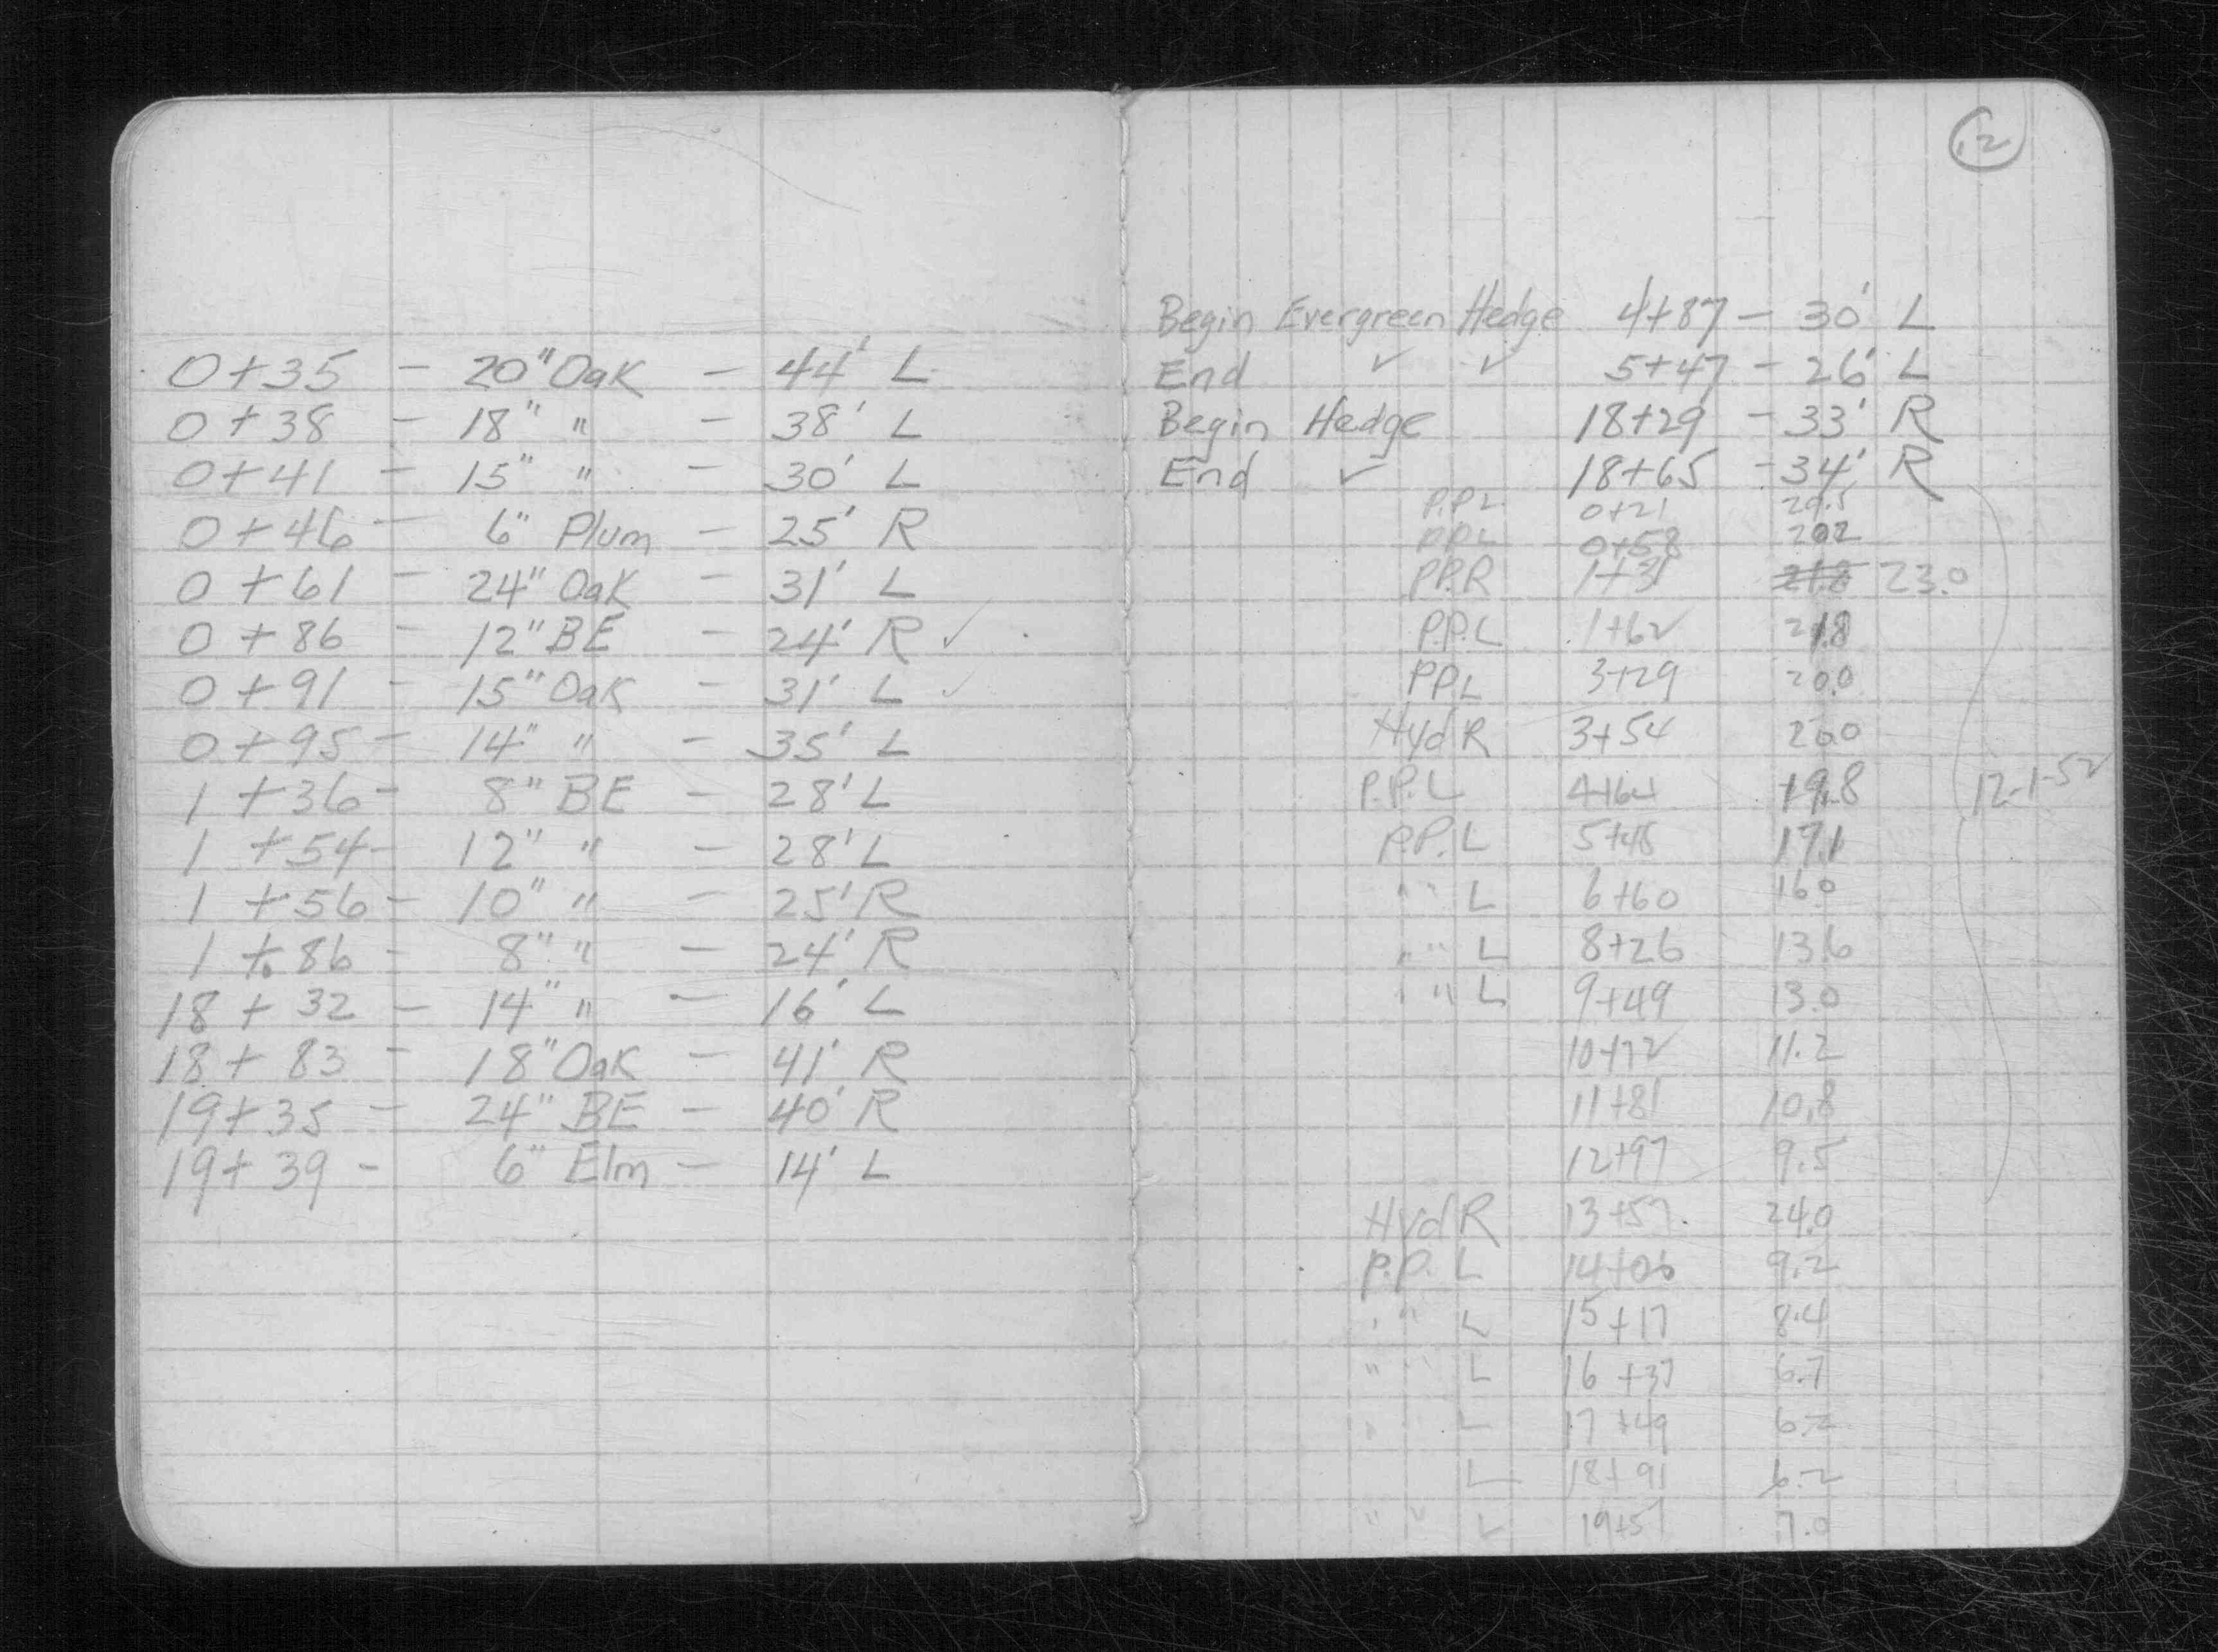 0+35 - 20" Oak - 44' L
0+38 - 18" " - 38' L
0+41 - 15" " - 30' L
0+46 - 6" Plum - 25' R
0+61 - 24" Oak - 31' L
0+86 - 12" BE - 24' R ✓
0+91 - 15" Oak - 31' L ✓
0+95 - 14" " - 35' L
1+36 - 8" BE - 28' L
1+54 - 12" " - 28' L
1+56 - 10" " - 25' R
1+86 - 8" " - 24' R
18+32 - 14" " - 16' L
18+83 - 18" Oak - 41' R
19+35 - 24" BE - 40' R
19+39 - 6" Elm - 14' L
12
Begin Evergreen Hedge 4+87 - 30' L
End ✓ ✓ 5+47 - 26' L
Begin Hedge 18+29 - 33' R
End ✓ 18+65 - 34' R
P.P.L 0+21 20.5
P.P.L 0+58 20.2
P.P.R 1+31 21.8 23.0
P.P.L 1+62 21.8
P.P.L 3+29 20.0
Hyd R 3+54
P.P.L 4+64 19.8 12-1-52
P.P.L 5+48 17.1
" " L 6+60 16.0
" " L 8+26 13.6
" " L 9+49 13.0
10+72 11.2
11+81 10.8
12+97 9.5
Hyd R 13+57 24.0
P.P. L 14+06 9.2
" " L 15+17 8.4
" " L 16+37 6.7
" " L 17+49 6.2
L 18+91 6.2
" " L 19+51 7.0